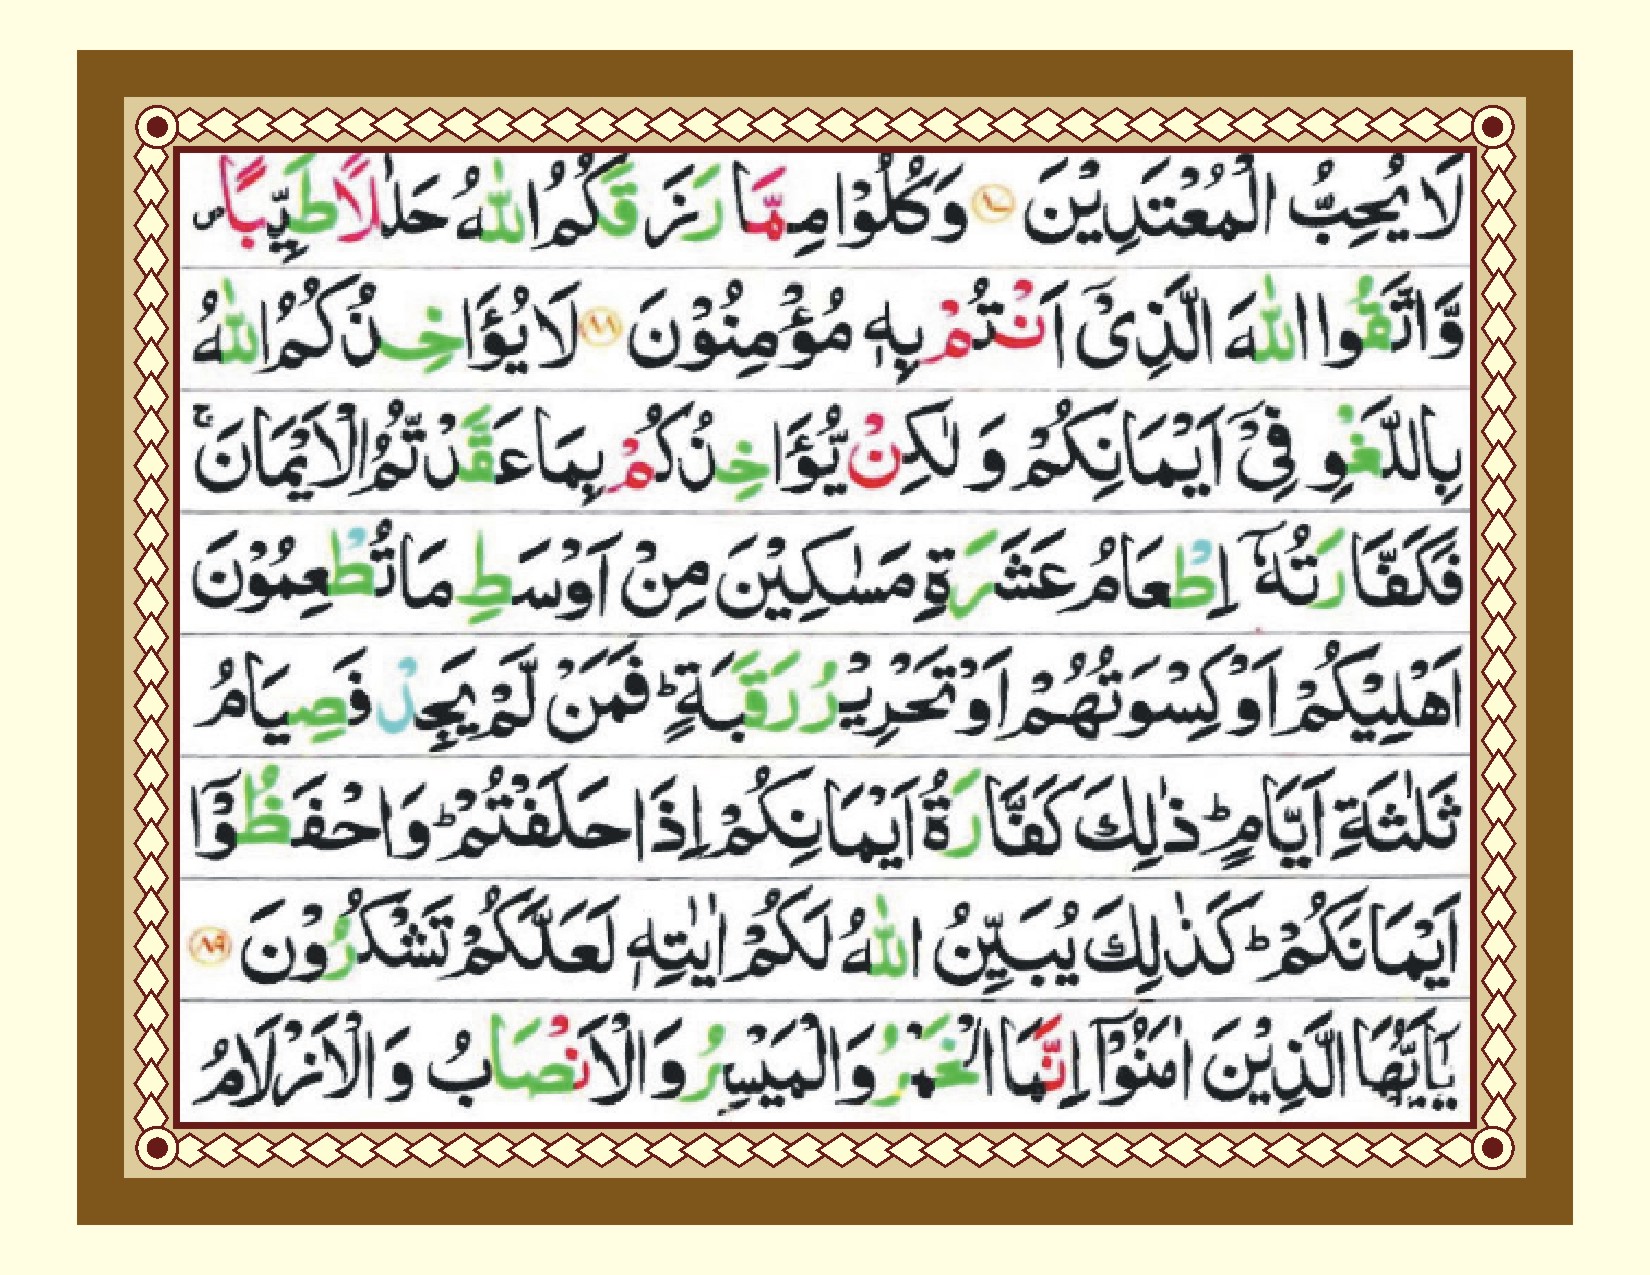 لَا يُحِبُّ الْمُعْتَدِيْنَ ۸۷ وَكُلُوْا مِمَّا رَزَقَكُمُ اللّٰهُ حَلٰلًا طَيِّبًا ۪
وَّاتَّقُوا اللّٰهَ الَّذِىْۤ اَنْتُمْ بِهٖ مُؤْمِنُوْنَ ۸۸ لَا يُؤَاخِذُكُمُ اللّٰهُ
بِاللَّغْوِ فِىْۤ اَيْمَانِكُمْ وَ لٰكِنْ يُّؤَاخِذُكُمْ بِمَا عَقَّدْتُّمُ الْاَيْمَانَ ۚ
فَكَفَّارَتُهٗۤ اِطْعَامُ عَشَرَةِ مَسٰكِيْنَ مِنْ اَوْسَطِ مَا تُطْعِمُوْنَ
اَهْلِيْكُمْ اَوْ كِسْوَتُهُمْ اَوْ تَحْرِيْرُ رَقَبَةٍ ؕ فَمَنْ لَّمْ يَجِدْ فَصِيَامُ
ثَلٰثَةِ اَيَّامٍ ؕ ذٰلِكَ كَفَّارَةُ اَيْمَانِكُمْ اِذَا حَلَفْتُمْ ؕ وَاحْفَظُوْۤا
اَيْمَانَكُمْ ؕ كَذٰلِكَ يُبَيِّنُ اللّٰهُ لَكُمْ اٰيٰتِهٖ لَعَلَّكُمْ تَشْكُرُوْنَ ۸۹
يٰۤاَيُّهَا الَّذِيْنَ اٰمَنُوْۤا اِنَّمَا الْخَمْرُ وَالْمَيْسِرُ وَالْاَنْصَابُ وَ الْاَزْلَامُ